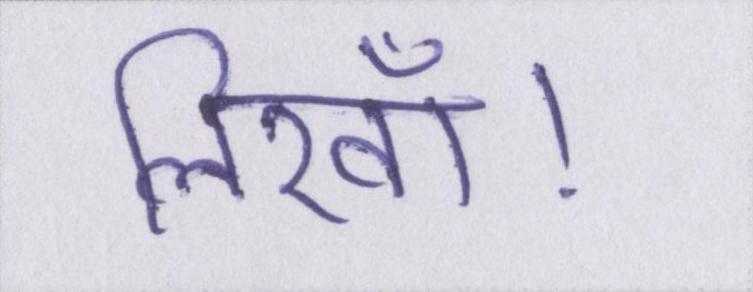 लिखाँ!